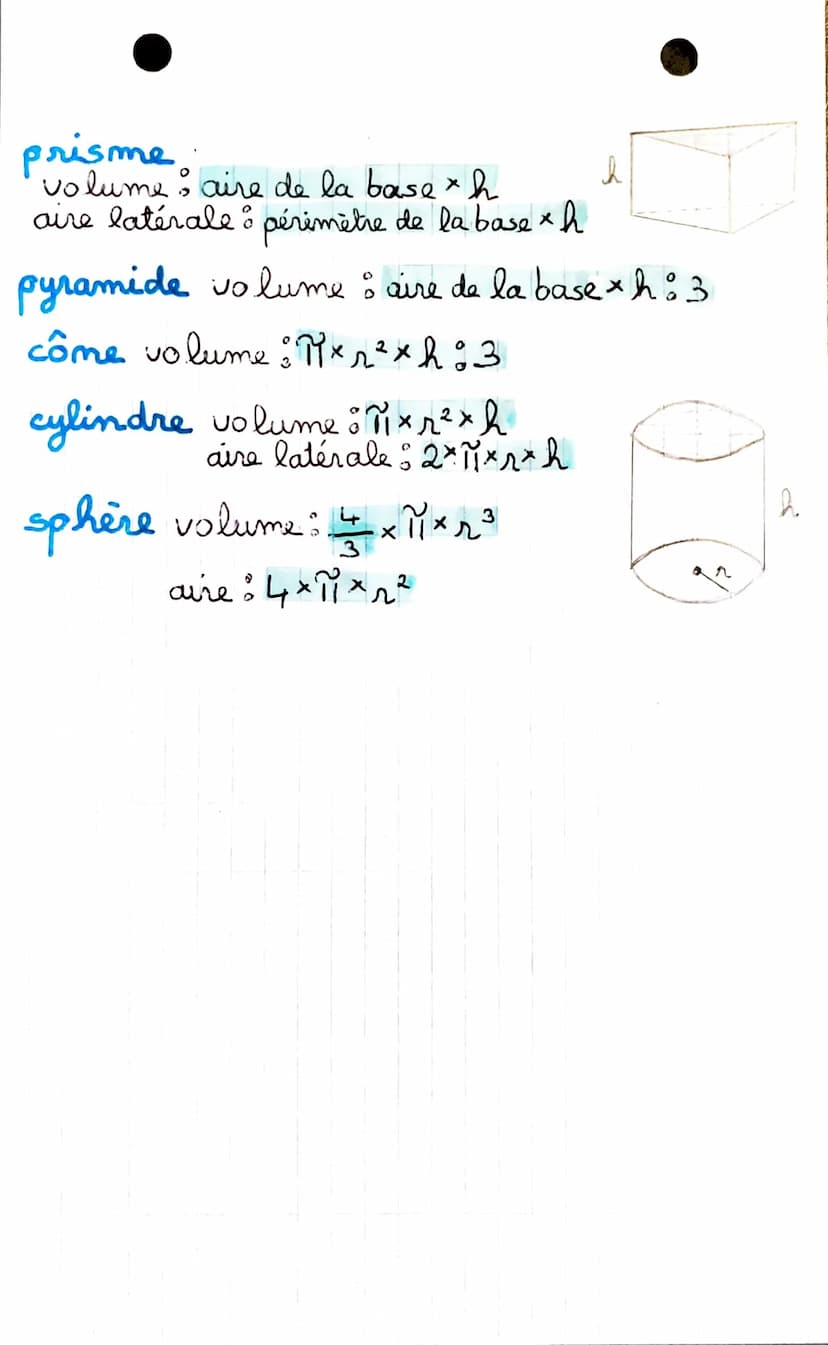 prisme
volume : aire de la base × h
aire latérale : périmètre de la base × h
h
pyramide volume : aire de la base × h : 3
cône volume : π × r² × h : 3
cylindre volume : π × r² × h
aire latérale : 2 × π × r × h
h
sphère volume : 4/3 × π × r³
r
aire : 4 × π × r²